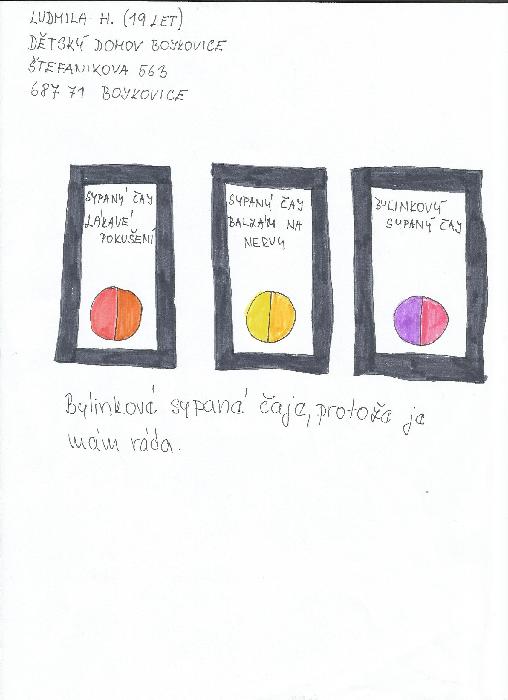 LUDMILA H. (19 LET)
DĚTSKÝ DOMOV BOJKOVICE
ŠTEFANIKOVA 563
687 71 BOJKOVICE
SYPANÝ ČAJ
LÁKAVÉ
POKUŠENÍ
SYPANÝ ČAJ
BALZÁM NA
NERVY
BYLINKOVÝ
SYPANÝ ČAJ
Bylinková sypaná čaje, protože je
mám ráda.